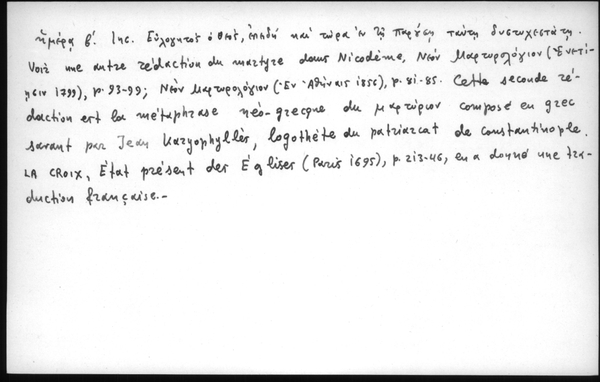 ἡμέρᾳ β'. Inc. Εὐλογητὸς ὁ Θεὸς, ἐπειδὴ καὶ τώρα ἐν τῇ παρούσῃ ταύτῃ δυστυχεστάτῃ.
Voir une autre rédaction du martyre dans Nicodème, Νέον Μαρτυρολόγιον (Ἐνετί-
ῃσιν 1799), p. 93-99; Νέον Μαρτυρολόγιον (Ἐν Ἀθήναις 1856), p. 81-85. Cette seconde ré-
daction est la métaphrase néo-grecque du μαρτύριον composé en grec
savant par Jean Karyophyllès, logothète du patriarcat de Constantinople.
LA CROIX, État présent des Églises (Paris 1695), p. 213-46, en a donné une tra-
duction française.-